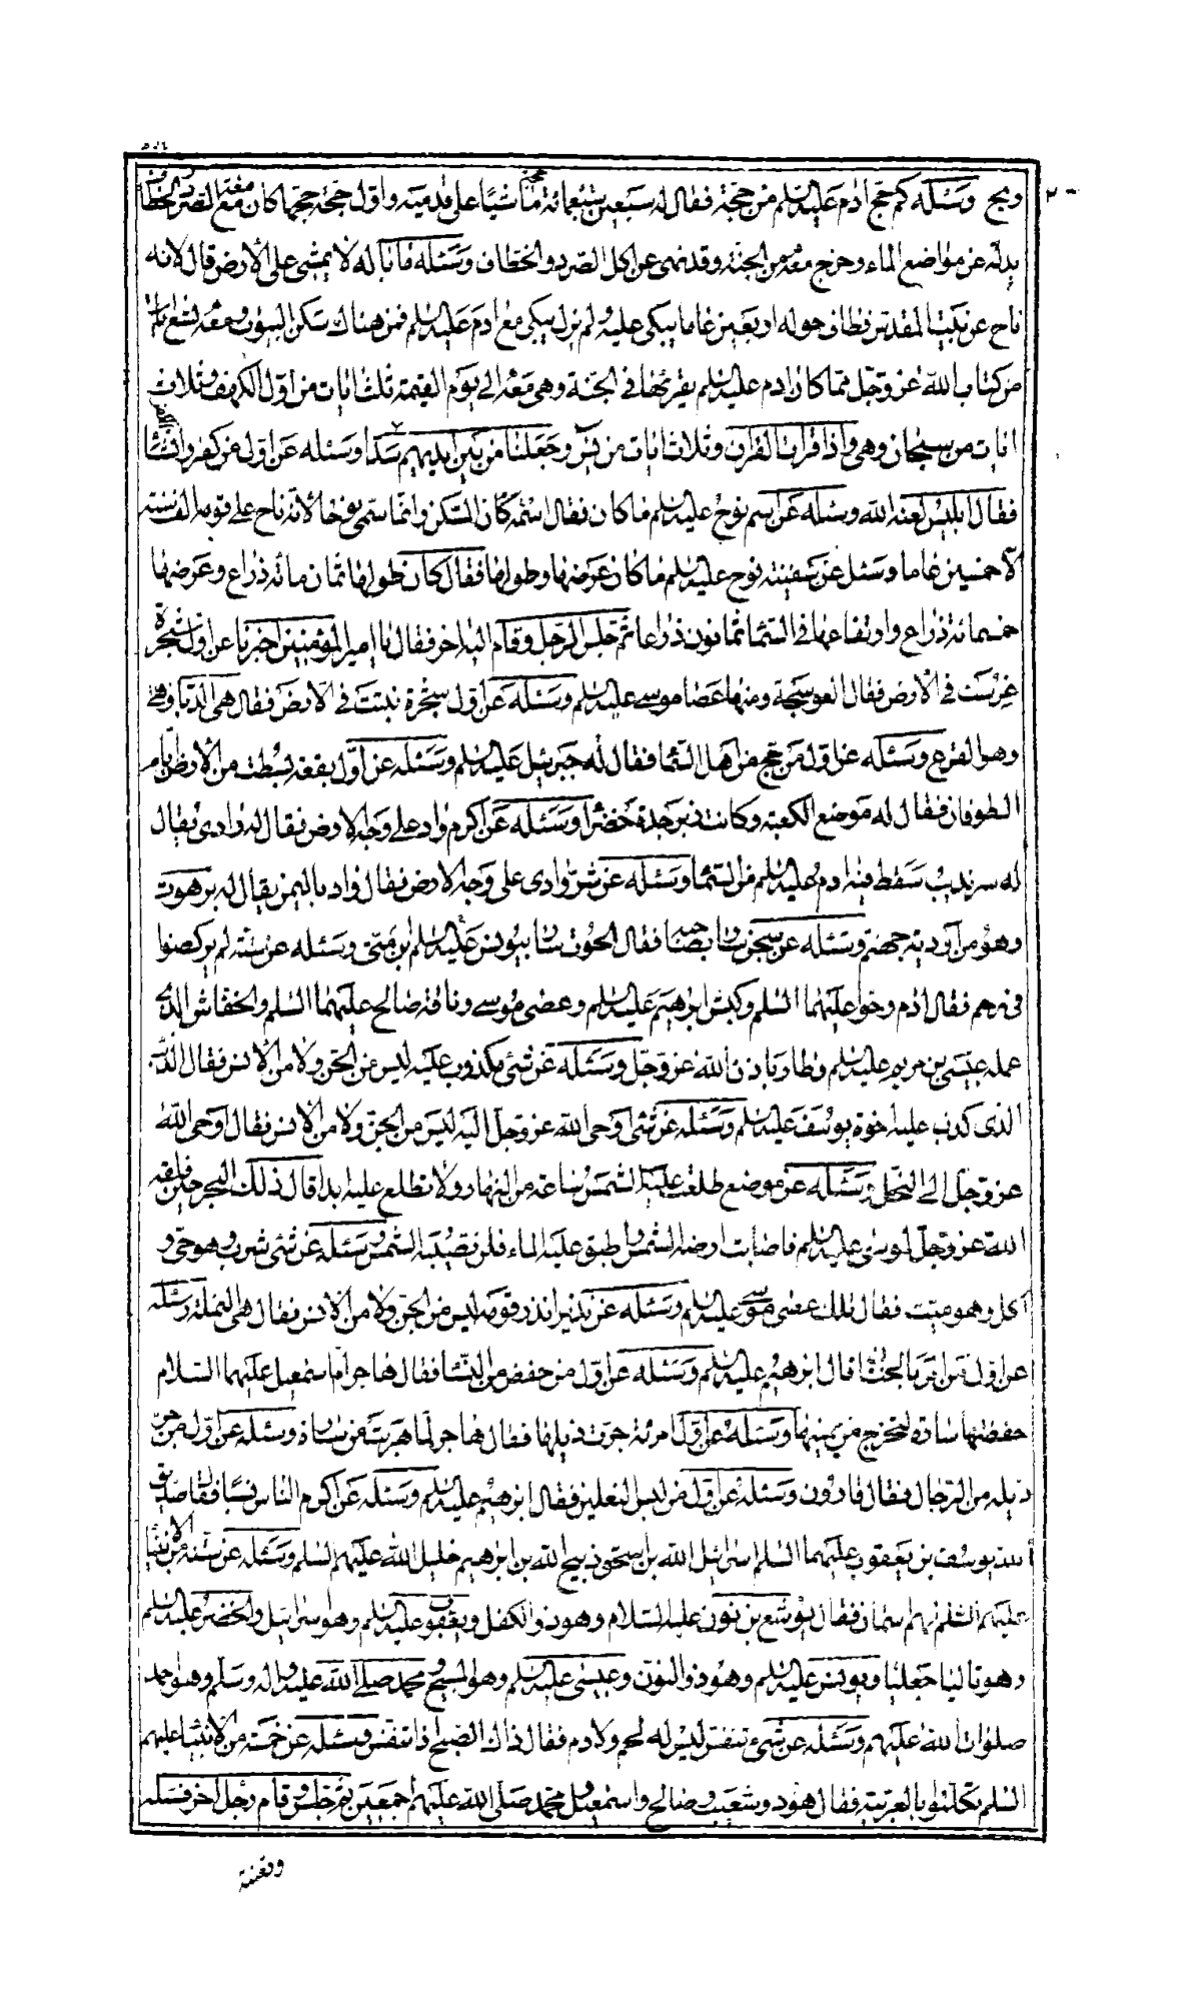 ويح وسئله كم حج ادم عليه السلم من حجة فقال له سبعين حجة ماشيا على قدميه واول حجة حجها كان معه الصرد والخطاف
يدله عن مواضع الماء وخرج معه من الجنة وقد نهى عن اكل الصرد والخطاف وسئله ما باله لا يمشى على الارض قال لانه
ناح عن بيت المقدس فطاف حوله اربعين عاما يبكى عليه ولم يزل يبكى مع ادم عليه السلم فمن هناك سكن البيوت ومعه تسع ايات
من كتاب الله عز وجل مما كان ادم عليه السلم يقرئها فى الجنة وهى معه الى يوم القيمة ثلث ايات من اول الكهف وثلاث
ايات من سبحان وهى واذا قرات القران وثلاث ايات من يس وجعلنا من بين ايديهم سدا وسئله عن اول من كفر وانشاء
فقال ابليس لعنه الله وسئله عن اسم نوح عليه السلم ما كان فقال اسمه كان السكن وانما سمى نوحا لانه ناح على قومه الف سنة
الا خمسين عاما وسئل عن سفينة نوح عليه السلم ما كان عرضها وطولها فقال كان طولها ثمان مائة ذراع وعرضها
خمسمائة ذراع وارتفاعها فى السماء ثمانون ذراعا ثم جلس الرجل وقام اليه اخر فقال يا امير المؤمنين اخبرنا عن اول شجرة
غرست فى الارض فقال العوسجة ومنها عصا موسى عليه السلم وسئله عن اول شجرة نبتت فى الارض فقال هى الدبا وهى
وهو القرع وسئله عن اول من حج من اهل السماء فقال له جبرئيل عليه السلم وسئله عن اول بقعة بسطت من الارض ايام
الطوفان فقال له موضع الكعبة وكانت زبرجدة خضراء وسئله عن اكرم واد على وجه الارض فقال له وادى يقال
له سرنديب سقط فيه ادم عليه السلم من السماء وسئله عن شر وادى على وجه الارض فقال واد باليمن يقال له برهوت
وهو من اودية جهنم وسئله عن سجن سار بصاحبه فقال الحوت سار بيونس عليه السلم بن متى وسئله عن ستة لم يركضوا
فى رحم فقال ادم وحوا عليهما السلم وكبش ابرهيم عليه السلم وعصى موسى وناقة صالح عليهما السلم والخفاش الذى
عمله عيسى بن مريم عليه السلم وطار باذن الله عز وجل وسئله عن شئ مكذوب عليه ليس من الجن ولا من الانس فقال الذئب
الذى كذب عليه اخوة يوسف عليه السلم وسئله عن شئ اوحى الله عز وجل اليه ليس من الجن ولا من الانس فقال اوحى الله
عز وجل الى النحل وسئله عن موضع طلعت عليه الشمس ساعة من النهار ولا تطلع عليه ابدا قال ذلك البحر حين فلقه
الله عز وجل لموسى عليه السلم فاصابت ارضه الشمس واطبق عليه الماء فلن تصيبه الشمس وسئله عن شئ شرب وهو حى و
اكل وهو ميت فقال تلك عصى موسى عليه السلم وسئله عن نذير انذر قومه ليس من الجن ولا من الانس فقال هى النملة وسئله
عن اول من امر بالختان قال ابرهيم عليه السلم وسئله عن اول من خفض من النساء فقال هاجر ام اسمعيل عليهما السلام
خفضتها سارة لتخرج من يمينها وسئله عن اول امرئة جرت ذيلها فقال هاجر لما هربت من سارة وسئله عن اول من جر
ذيله من الرجال فقال قارون وسئله عن اول من لبس النعلين فقال ابرهيم عليه السلم وسئله عن اكرم الناس نسبا فقال صديق
الله يوسف بن يعقوب عليهما السلم اسرائيل الله بن اسحق ذبيح الله بن ابرهيم خليل الله عليهم السلم وسئله عن ستة من الانبياء
عليهم السلم لهم اسمان فقال يوشع بن نون عليه السلام وهو ذو الكفل ويعقوب عليه السلم وهو اسرائيل والخضر عليه السلم
وهو تاليا ويونس عليه السلم وهو ذو النون وعيسى عليه السلم وهو المسيح ومحمد صلى الله عليه واله وسلم وهو احمد
صلوات الله عليهم وسئله عن شئ تنفس ليس له لحم ولا دم فقال ذاك الصبح اذا تنفس وسئله عن خمسة من الانبياء عليهم
السلم تكلموا بالعربية فقال هود وشعيب وصالح واسمعيل ومحمد صلى الله عليهم اجمعين ثم جلس وقام رجل اخر فسئله
وتعنته